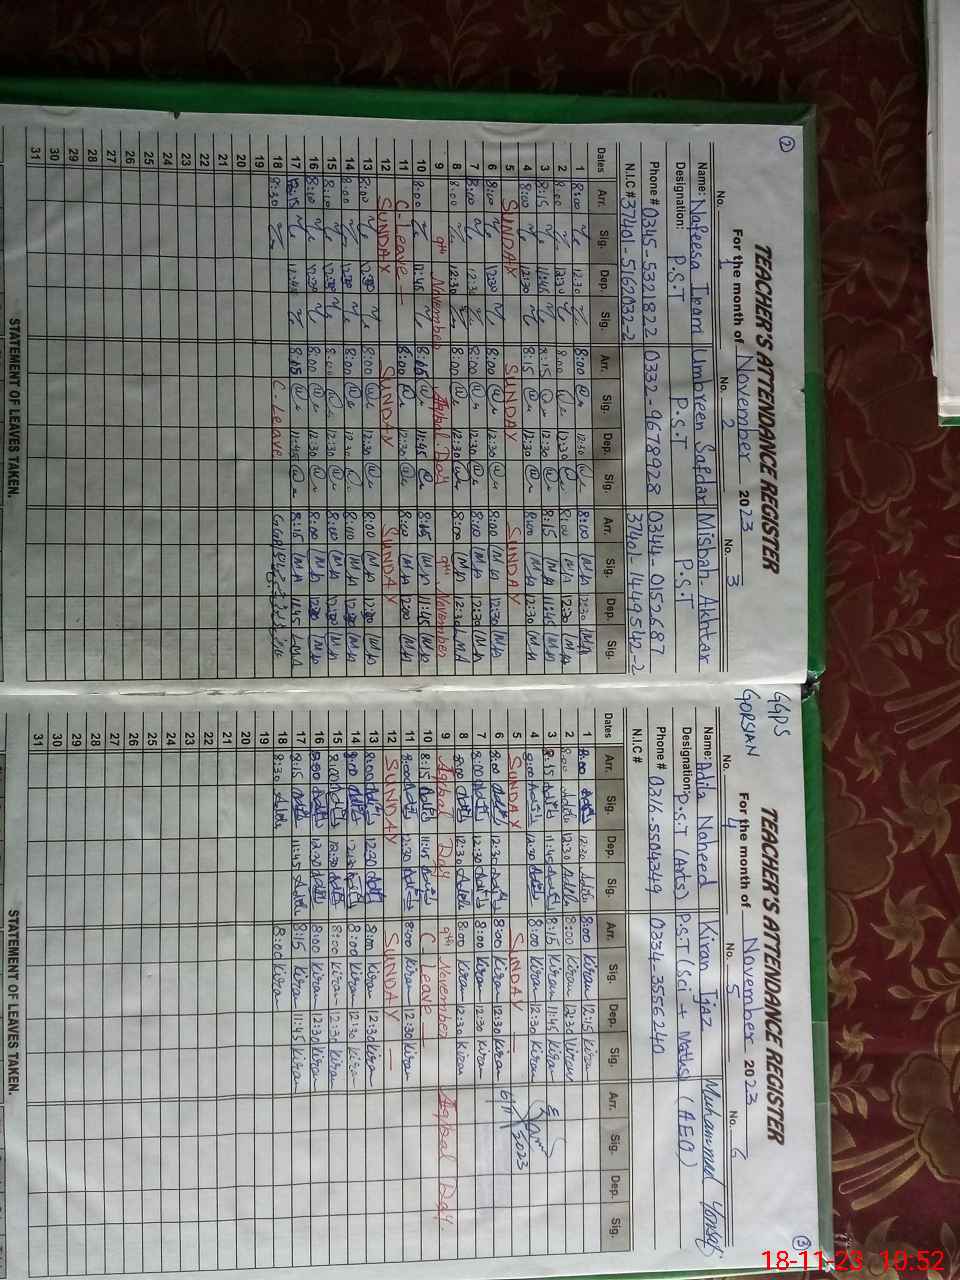 2
TEACHER'S ATTENDANCE REGISTER
For the month of November 2023
No. 1 No. 2 No. 3
Name: Nafeesa Ikram Umbreen Safdar Misbah-Akhtar
Designation: P.S.T P.S.T P.S.T
Phone # 0345-5321822 0332-9678928 0344-0152687
N.I.C # 37401-5162032-2 37401-1449542-2
Dates Arr. Sig. Dep. Sig. Arr. Sig. Dep. Sig. Arr. Sig. Dep. Sig.
1 8:00 12:30 8:00 12:30 8:00 12:30
2 8:00 12:30 8:00 12:30 8:00 12:30
3 8:15 11:45 8:15 12:30 8:15 11:45
4 8:00 12:30 8:15 12:30 8:00 12:30
5 SUNDAY SUNDAY SUNDAY
6 8:00 12:30 8:00 12:30 8:00 12:30
7 8:00 12:30 8:00 12:30 8:00 12:30
8 8:00 12:30 8:00 12:30 8:00 12:30
9 9th November Iqbal Day 9th November
10 8:00 11:45 8:15 11:45 8:15 11:45
11 C-Leave 8:00 12:30 8:00
12 SUNDAY SUNDAY SUNDAY
13 8:00 12:30 8:00 12:30 8:00 12:30
14 8:00 12:30 8:00 12:30 8:00 12:30
15 8:00 12:30 8:00 12:30 8:00 12:30
16 8:00 12:30 8:00 12:30 8:00 12:30
17 8:15 8:15 11:45 8:15 11:45
18 8:30 C-Leave
19
20
21
22
23
24
25
26
27
28
29
30
31
STATEMENT OF LEAVES TAKEN.
GGPS
GORSIAN
3
TEACHER'S ATTENDANCE REGISTER
For the month of November 2023
No. 4 No. 5 No. 6
Name: Adila Naheed Kiran Ijaz Muhammad Yousaf
Designation: P.S.T (Arts) P.S.T (Sci + Maths) (AEO)
Phone # 0316-5504349 0334-3556240
N.I.C #
Dates Arr. Sig. Dep. Sig. Arr. Sig. Dep. Sig. Arr. Sig. Dep. Sig.
1 8:00 12:30 8:00 Kiran 12:15 Kiran
2 8:00 12:30 8:00 Kiran 12:30 Kiran
3 8:15 11:45 8:15 Kiran 11:45 Kiran
4 8:00 12:30 8:00 Kiran 12:30 Kiran
5 SUNDAY SUNDAY
6 8:00 12:30 8:00 Kiran 12:30 Kiran
7 8:00 12:30 8:00 Kiran 12:30 Kiran
8 8:00 12:30 8:00 Kiran 12:30 Kiran
9 Iqbal Day 9th November Iqbal Day
10 8:15 11:45 C-Leave
11 8:00 12:30 8:00 Kiran 12:30 Kiran
12 SUNDAY SUNDAY
13 8:00 12:30 8:00 Kiran 12:30 Kiran
14 8:00 12:30 8:00 Kiran 12:30 Kiran
15 8:00 12:30 8:00 Kiran 12:30 Kiran
16 12:30 8:00 Kiran 12:30 Kiran
17 8:15 11:45 8:15 Kiran 11:45 Kiran
18 8:30 8:00 Kiran
19
20
21
22
23
24
25
26
27
28
29
30
31
STATEMENT OF LEAVES TAKEN.
18-11-23 10:52